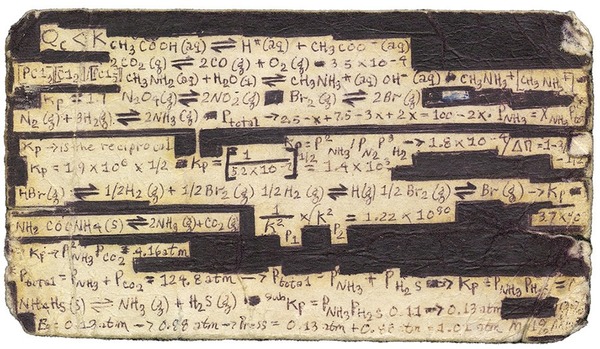 Qc < K CH3COOH(aq) ⇌ H+(aq) + CH3COO-(aq)
2CO2(g) ⇌ 2CO(g) + O2(g) = 3.5 x 10-4
[PCl3][Cl2]/[Cl5] CH3NH2(aq) + H2O(l) ⇌ CH3NH3+(aq) OH-(aq) CH3NH3+
Kp = 1.7 N2O4(g) ⇌ 2NO2(g) Br2(g) ⇌ 2Br(g)
N2(g) + 3H2(g) ⇌ 2NH3(g) → Ptotal → 2.5 - x + 7.5 - 3x + 2x = 100 - 2x. PNH3 = XNH3
Kp → is the reciprocal Kp = P2NH3 / PN2 P3H2 → 1.8 x 10-4 Y/Δn = 1-3
Kp = 1.9 x 106 x 1/2 Kp = [1/5.2 x 10-7]1/2 = 1.4 x 103
HBr(g) ⇌ 1/2H2(g) + 1/2Br2(g) 1/2H2(g) ⇌ H(g) 1/2Br2(g) ⇌ Br(g) → Kp =
NH2COONH4(s) ⇌ 2NH3(g) + CO2(g) 1/K2P1 x/K2P2 = 1.22 x 1090
Kp → P2NH3 PCO2 = 4.16 atm
Ptotal = PNH3 + PCO2 = 124.8 atm → Ptotal = PNH3 + PH2S → Kp = PNH3PH2S =
NH4HS(s) ⇌ NH3(g) + H2S(g) sub Kp = PNH3PH2S 0.11 → 0.13 atm
0.13 atm → 0.88 atm → Press = 0.13 atm + 0.88 atm = 1.01 atm